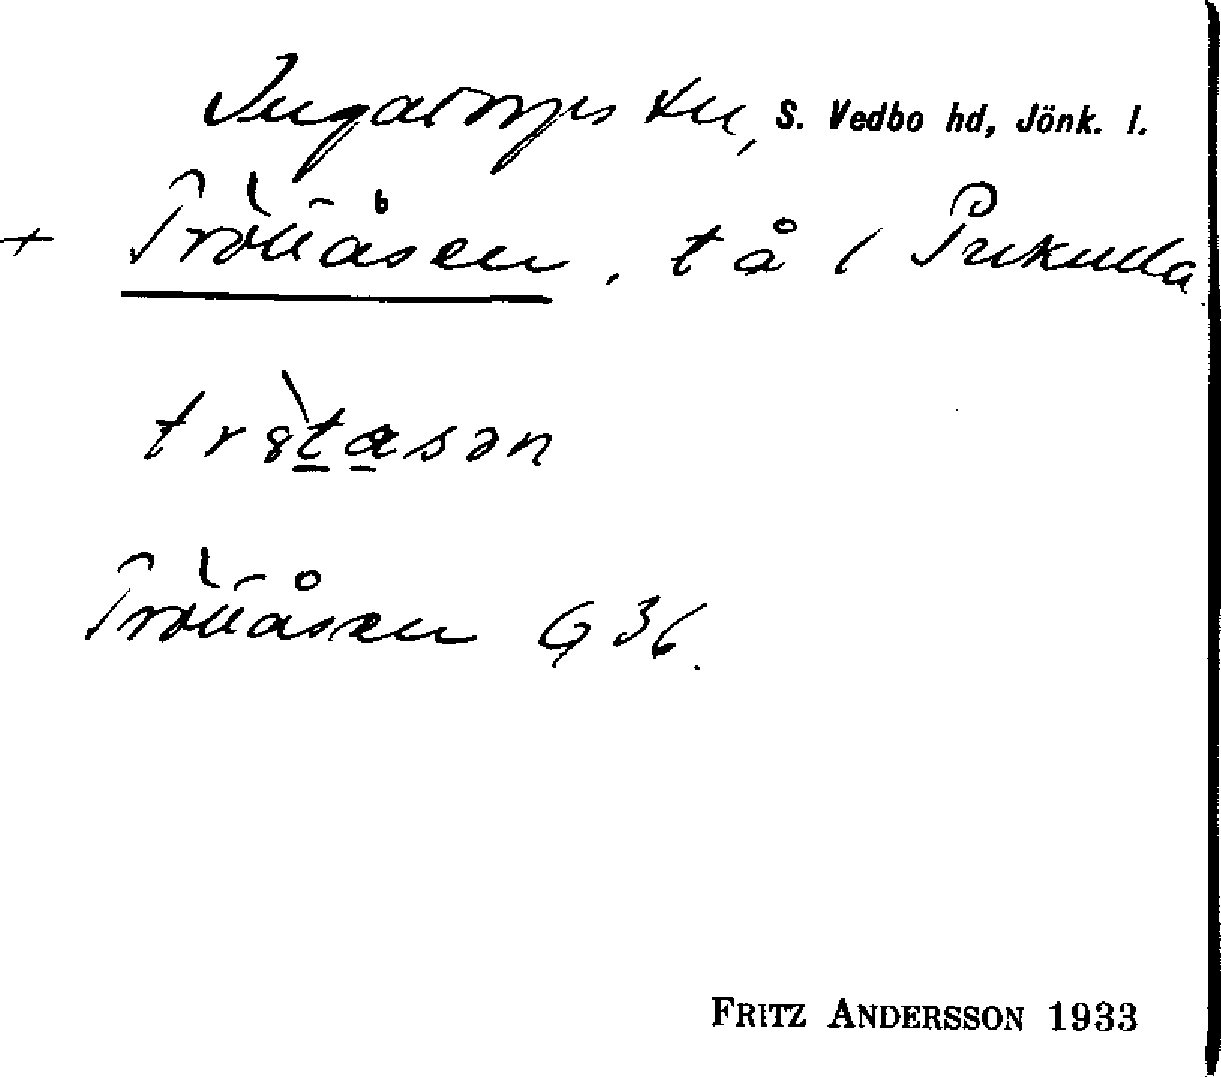 Ingatorps sn, S. Vedbo hd, Jönk. l.
+ Tröttåsen, t å i Pukulla
Tröttåsen G 36.
FRITZ ANDERSSON 1933